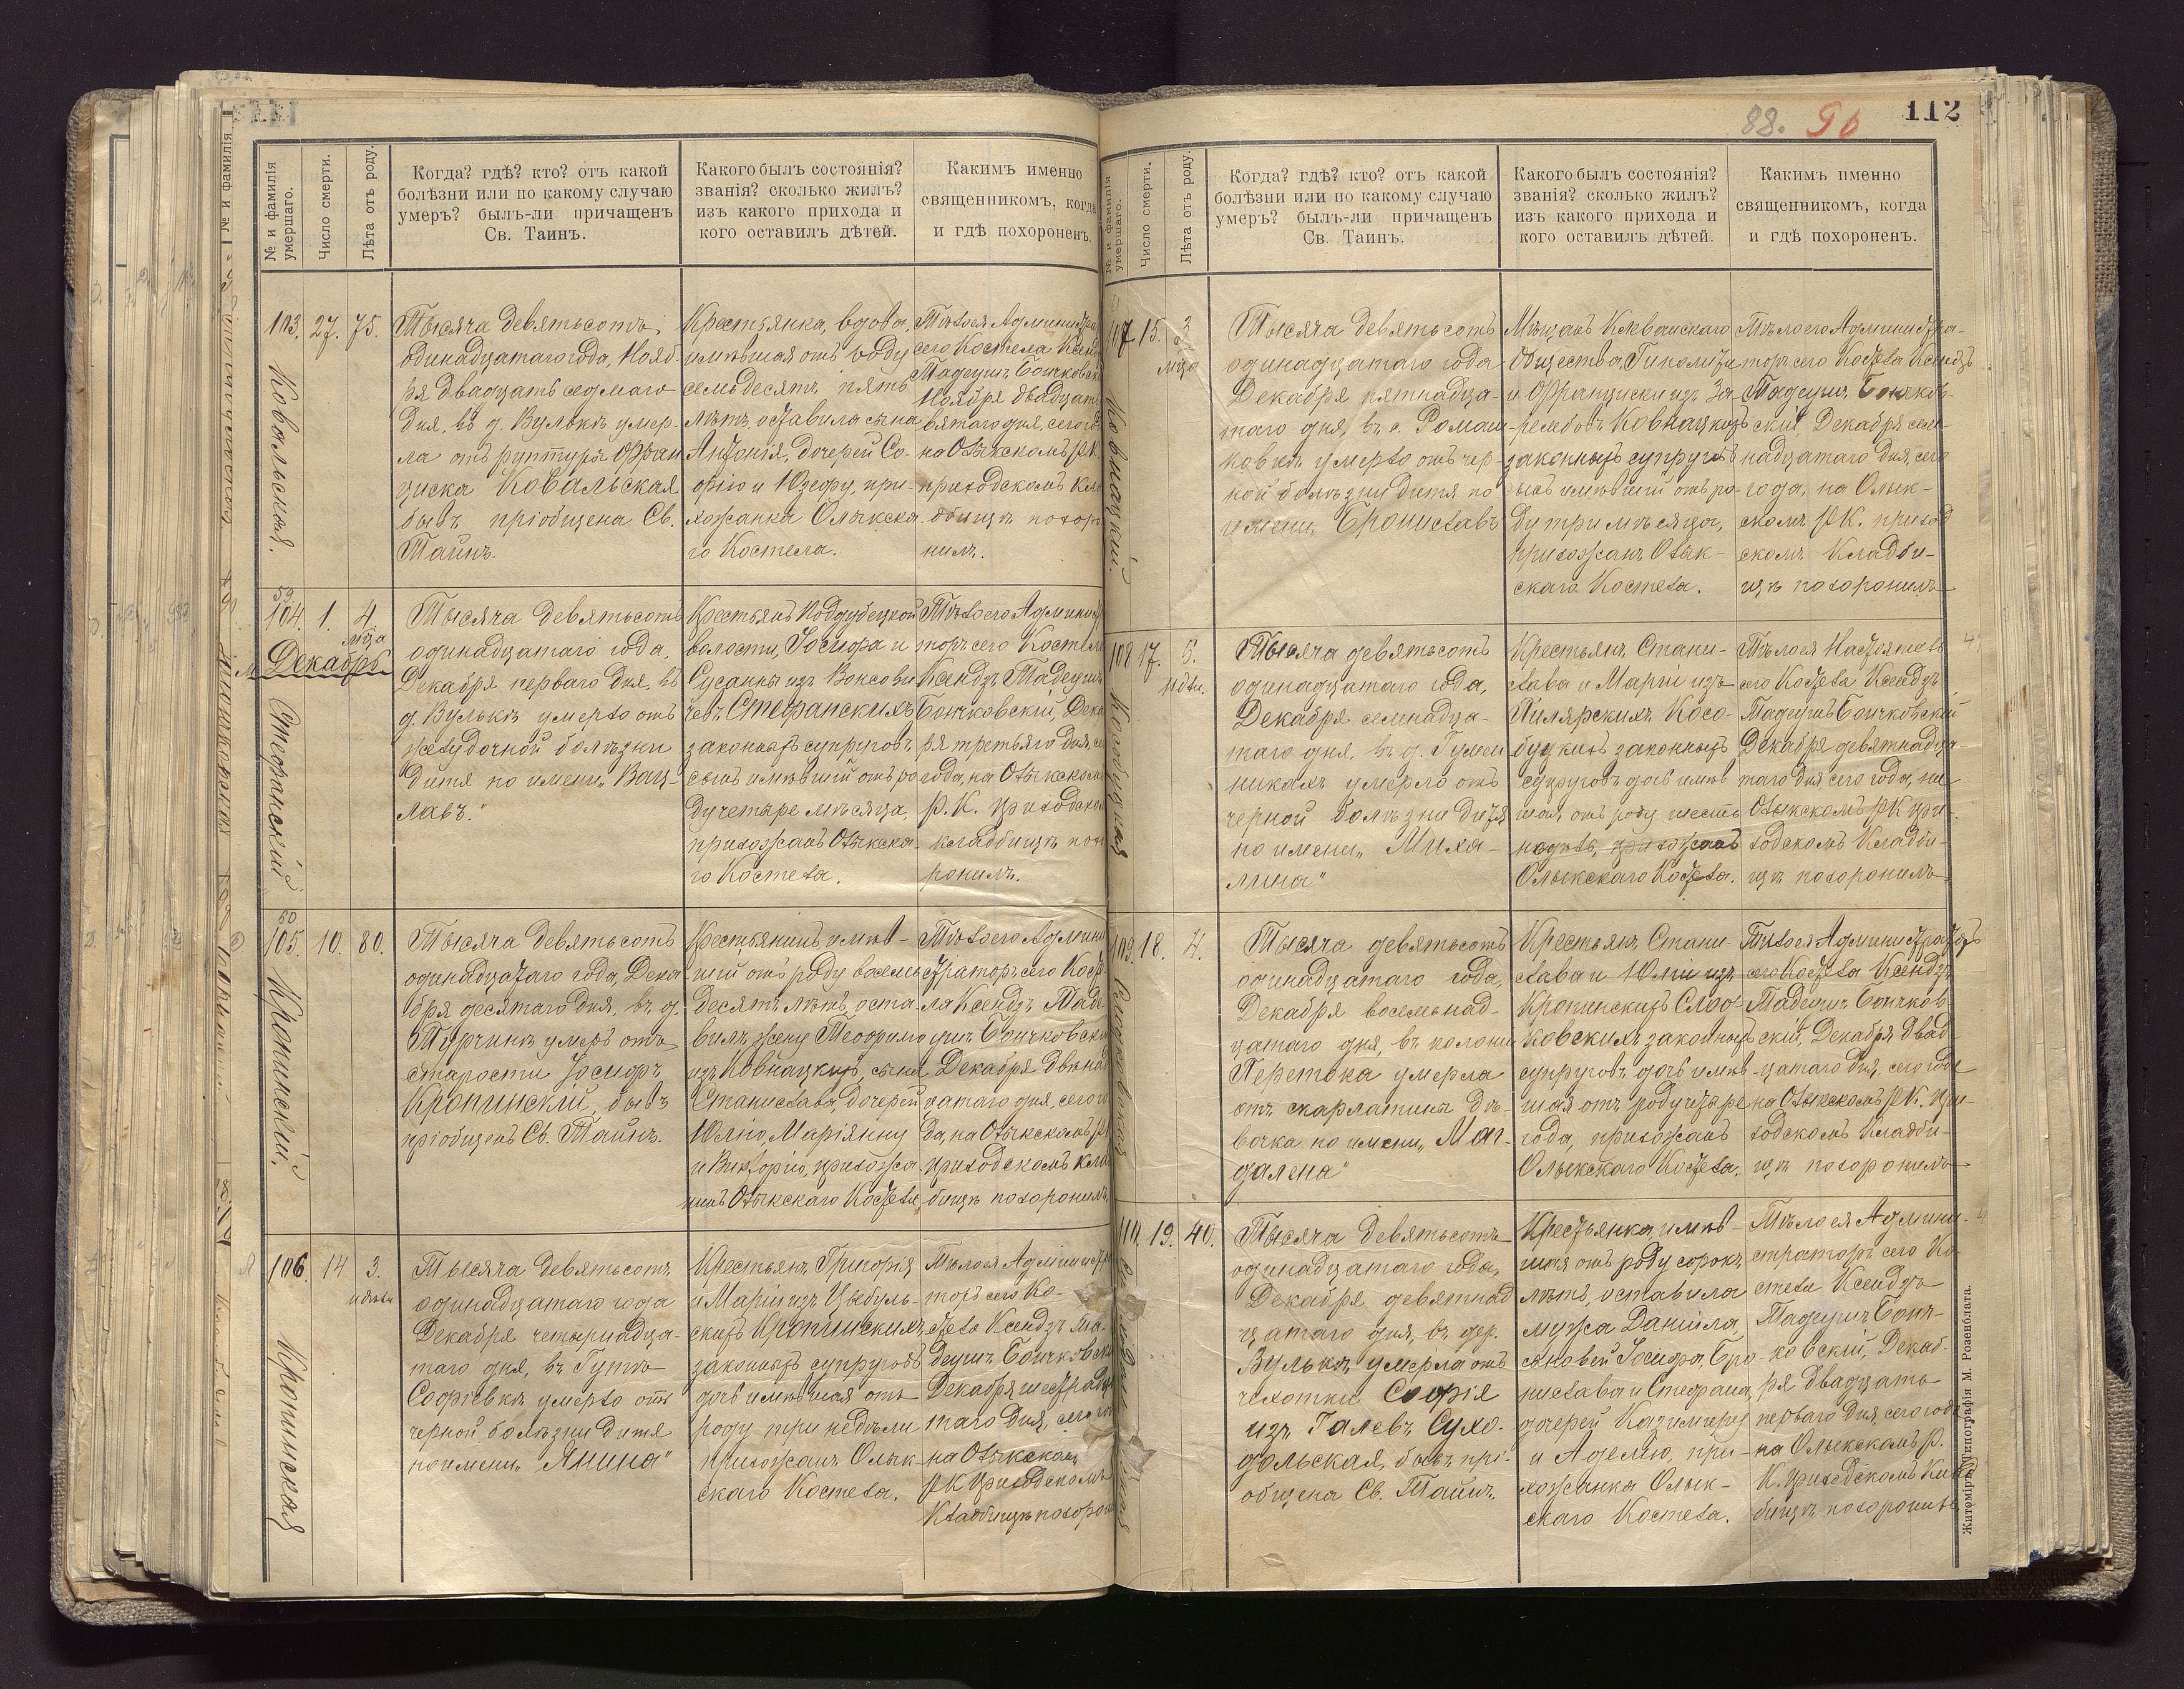 112
88. 96
№ и фамилія умершаго.
Число смерти.
Лѣта отъ роду.
Когда? гдѣ? кто? отъ какой
болѣзни или по какому случаю
умеръ? былъ-ли причащенъ
Св. Таинъ.
Какого былъ состоянія?
званія? сколько жилъ?
изъ какого прихода и
кого оставилъ дѣтей.
Каким именно
священникомъ, когда
и гдѣ похороненъ.
103. 27. 75.
Ковальская.
Тысяча девятьсотъ
одинадцатаго года, Нояб-
ря двадцать седмаго
дня, въ д. Вулькѣ умер-
ла отъ руптуры Фран
циска Ковальская
бывъ пріобщена Св.
Тайнъ.
Крестьянка, вдова,
имѣвшая отъ роду
семьдесятъ пять
лѣтъ, оставила сына
Антонія, дочерей Со-
фію и Юзефу, при-
хожанка Олыкска
го Костела.
Тѣло ея Администра
сего Костела Ксенд
Тадеушъ Бончковск
Ноября двадцат
вятаго дня, сего го
на Олыкскомъ Р.К.
приходскомъ кла
дбищѣ похор
нилъ.
59
104. 1. 4 м-ца
Декабрь
Стефанскій
Тысяча девятьсотъ
одинадцатаго года,
Декабря перваго дня, въ
д. Вулькѣ умерло отъ
желудочной болѣзни
дитя по имени „Вац-
лавъ."
Крестьянъ Поддубецкой
волости, Іосифа и
Сусанны изъ Вонсови
чевъ Стефанскихъ
законныхъ супруговъ
сынъ имѣвшій отъ ро
ду четыре мѣсяца,
прихожанъ Олыкска-
го Костела.
Тѣло его Админист
торъ сего Костела
Ксендзъ Тадеушъ
Бончковскій, Дека
ря третьяго дня, се
года, на Олыкском
Р. К. приходском
кладбищѣ пох
ронилъ.
60
105. 10. 80.
Кропинскій.
Тысяча девятьсотъ
одинадцатаго года, Дека
бря десятаго дня, въ д.
Турчинѣ умеръ отъ
старости Іосифъ
Кропинскій, бывъ
пріобщенъ Св. Тайнъ.
Крестьянинъ имѣв-
шій отъ роду восемь
десятъ лѣтъ, оста-
вилъ жену Теофилю
изъ Ковнацкихъ, сына
Станислава, дочерей
Юлію, Маріянну
и Викторію, прихожа-
нинъ Олыкскаго Костела.
Тѣло его Админи
страторъ сего Косте
ла Ксендзъ Таде-
ушъ Бончковскі
Декабря двѣнад
цатаго дня, сего го
да, на Олыкскомъ Р.К.
приходскомъ кла
бищѣ похоронилъ.
106. 14 3. недѣли
Кропинская
Тысяча девятьсотъ
одинадцатаго года
Декабря четырнадца-
таго дня, въ Гутѣ
Софіевкѣ умерло отъ
черной болѣзни дитя
по имени „Янина"
Крестьянъ Григорія
и Маріи изъ Цыбуль-
скихъ Кропинскихъ
законныхъ супруговъ
дочь имѣвшая отъ
роду три недѣли
прихожанъ Олык-
скаго Костела.
Тѣло ея Администра
торъ сего Ко-
стела Ксендзъ Та-
деушъ Бончковскі
Декабря шестнадца
таго дня, сего го
на Олыкскомъ
Р.К. приходскомъ
Кладбищѣ похоро
№ и фамилія умершаго.
Число смерти.
Лѣта отъ роду.
Когда? гдѣ? кто? отъ какой
болѣзни или по какому случаю
умеръ? былъ-ли причащенъ
Св. Таинъ.
Какого былъ состоянія?
званія? сколько жилъ?
изъ какого прихода и
кого оставилъ дѣтей.
Какимъ именно
священникомъ, когда
и гдѣ похороненъ.
107 15. 3 м-ца
Ковнацкій.
Тысяча девятьсотъ
одинадцатаго года
Декабря пятнадца-
таго дня, въ с. Ромаш-
ковкѣ умерло отъ чер-
ной болѣзни дитя по
имени „Брониславъ
Мѣщанъ Клеванскаго
Общества, Гиполита
и Франциски изъ За-
рембовъ Ковнацкихъ
законныхъ супруговъ
сынъ имѣвшій отъ ро-
ду три мѣсяца,
прихожанъ Олык-
скаго Костела.
Тѣло его Администра-
торъ сего Костела Ксендзъ
Тадеушъ Бончков-
скій, Декабря сем-
надцатаго дня, сего
года, на Олык-
скомъ Р.К. приход
скомъ Кладби-
щѣ похоронилъ
108 17. 6. недѣл.
Кособуцкая
Тысяча девятьсотъ
одинадцатаго года,
Декабря семнадца-
таго дня, въ д. Гумен
никахъ умерло отъ
черной болѣзни дитя
по имени „Миха-
лина"
Крестьянъ Стани-
слава и Маріи изъ
Пилярскихъ Косо-
буцкихъ законныхъ
супруговъ дочь имѣв
шая, отъ роду шесть
недѣль, прихожанъ
Олыкскаго Костела.
Тѣло ея Настоятель
сего Костела Ксендзъ
Тадеушъ Бончковскій
Декабря девятнадца-
таго дня сего года, на
Олыкскомъ Р.К. при-
ходскомъ Кладби-
щѣ похоронилъ
109. 18. 4.
Тысяча девятьсотъ
одинадцатаго года,
Декабря восемьнад-
цатаго дня, въ колоніи
Перетока умерла
отъ скарлатины дѣ-
вочка по имени „Маг-
далена"
Крестьянъ Стани-
слава и Юліи изъ
Кропинскихъ
ковскихъ законныхъ
супруговъ дочь имѣв-
шая отъ роду четыре
года, прихожанъ
Олыкскаго Костела.
Тѣло ея Администраторъ
сего Костела Ксендзъ
Тадеушъ Бончков-
скій, Декабря двад
цатаго дня, сего года
на Олыкскомъ Р.К. при-
ходскомъ Кладби-
щѣ похоронилъ
110. 19. 40.
Тысяча девятьсотъ
одинадцатаго года,
Декабря девятнад
цатаго дня, въ дер.
Вулькѣ умерла отъ
чахотки Софія
изъ Галевъ Сухо-
дольская, бывъ прі-
общена Св. Тайнъ.
Крестьянка, имѣв-
шая отъ роду сорокъ
лѣтъ, оставила
мужа Даніила,
сыновей Іосифа, Бро-
нислава и Стефана,
дочерей Казимиру
и Аделю, при-
хожанка Олык-
скаго Костела.
Тѣло ея Админи-
страторъ сего Ко-
стела Ксендзъ
Тадеушъ Бонч-
ковскій, Декаб-
ря двадцать
перваго дня, сего года
на Олыкскомъ Р.
К. приходскомъ Клад
бищѣ похоронилъ
Житоміръ, Типографія М. Розенблата.